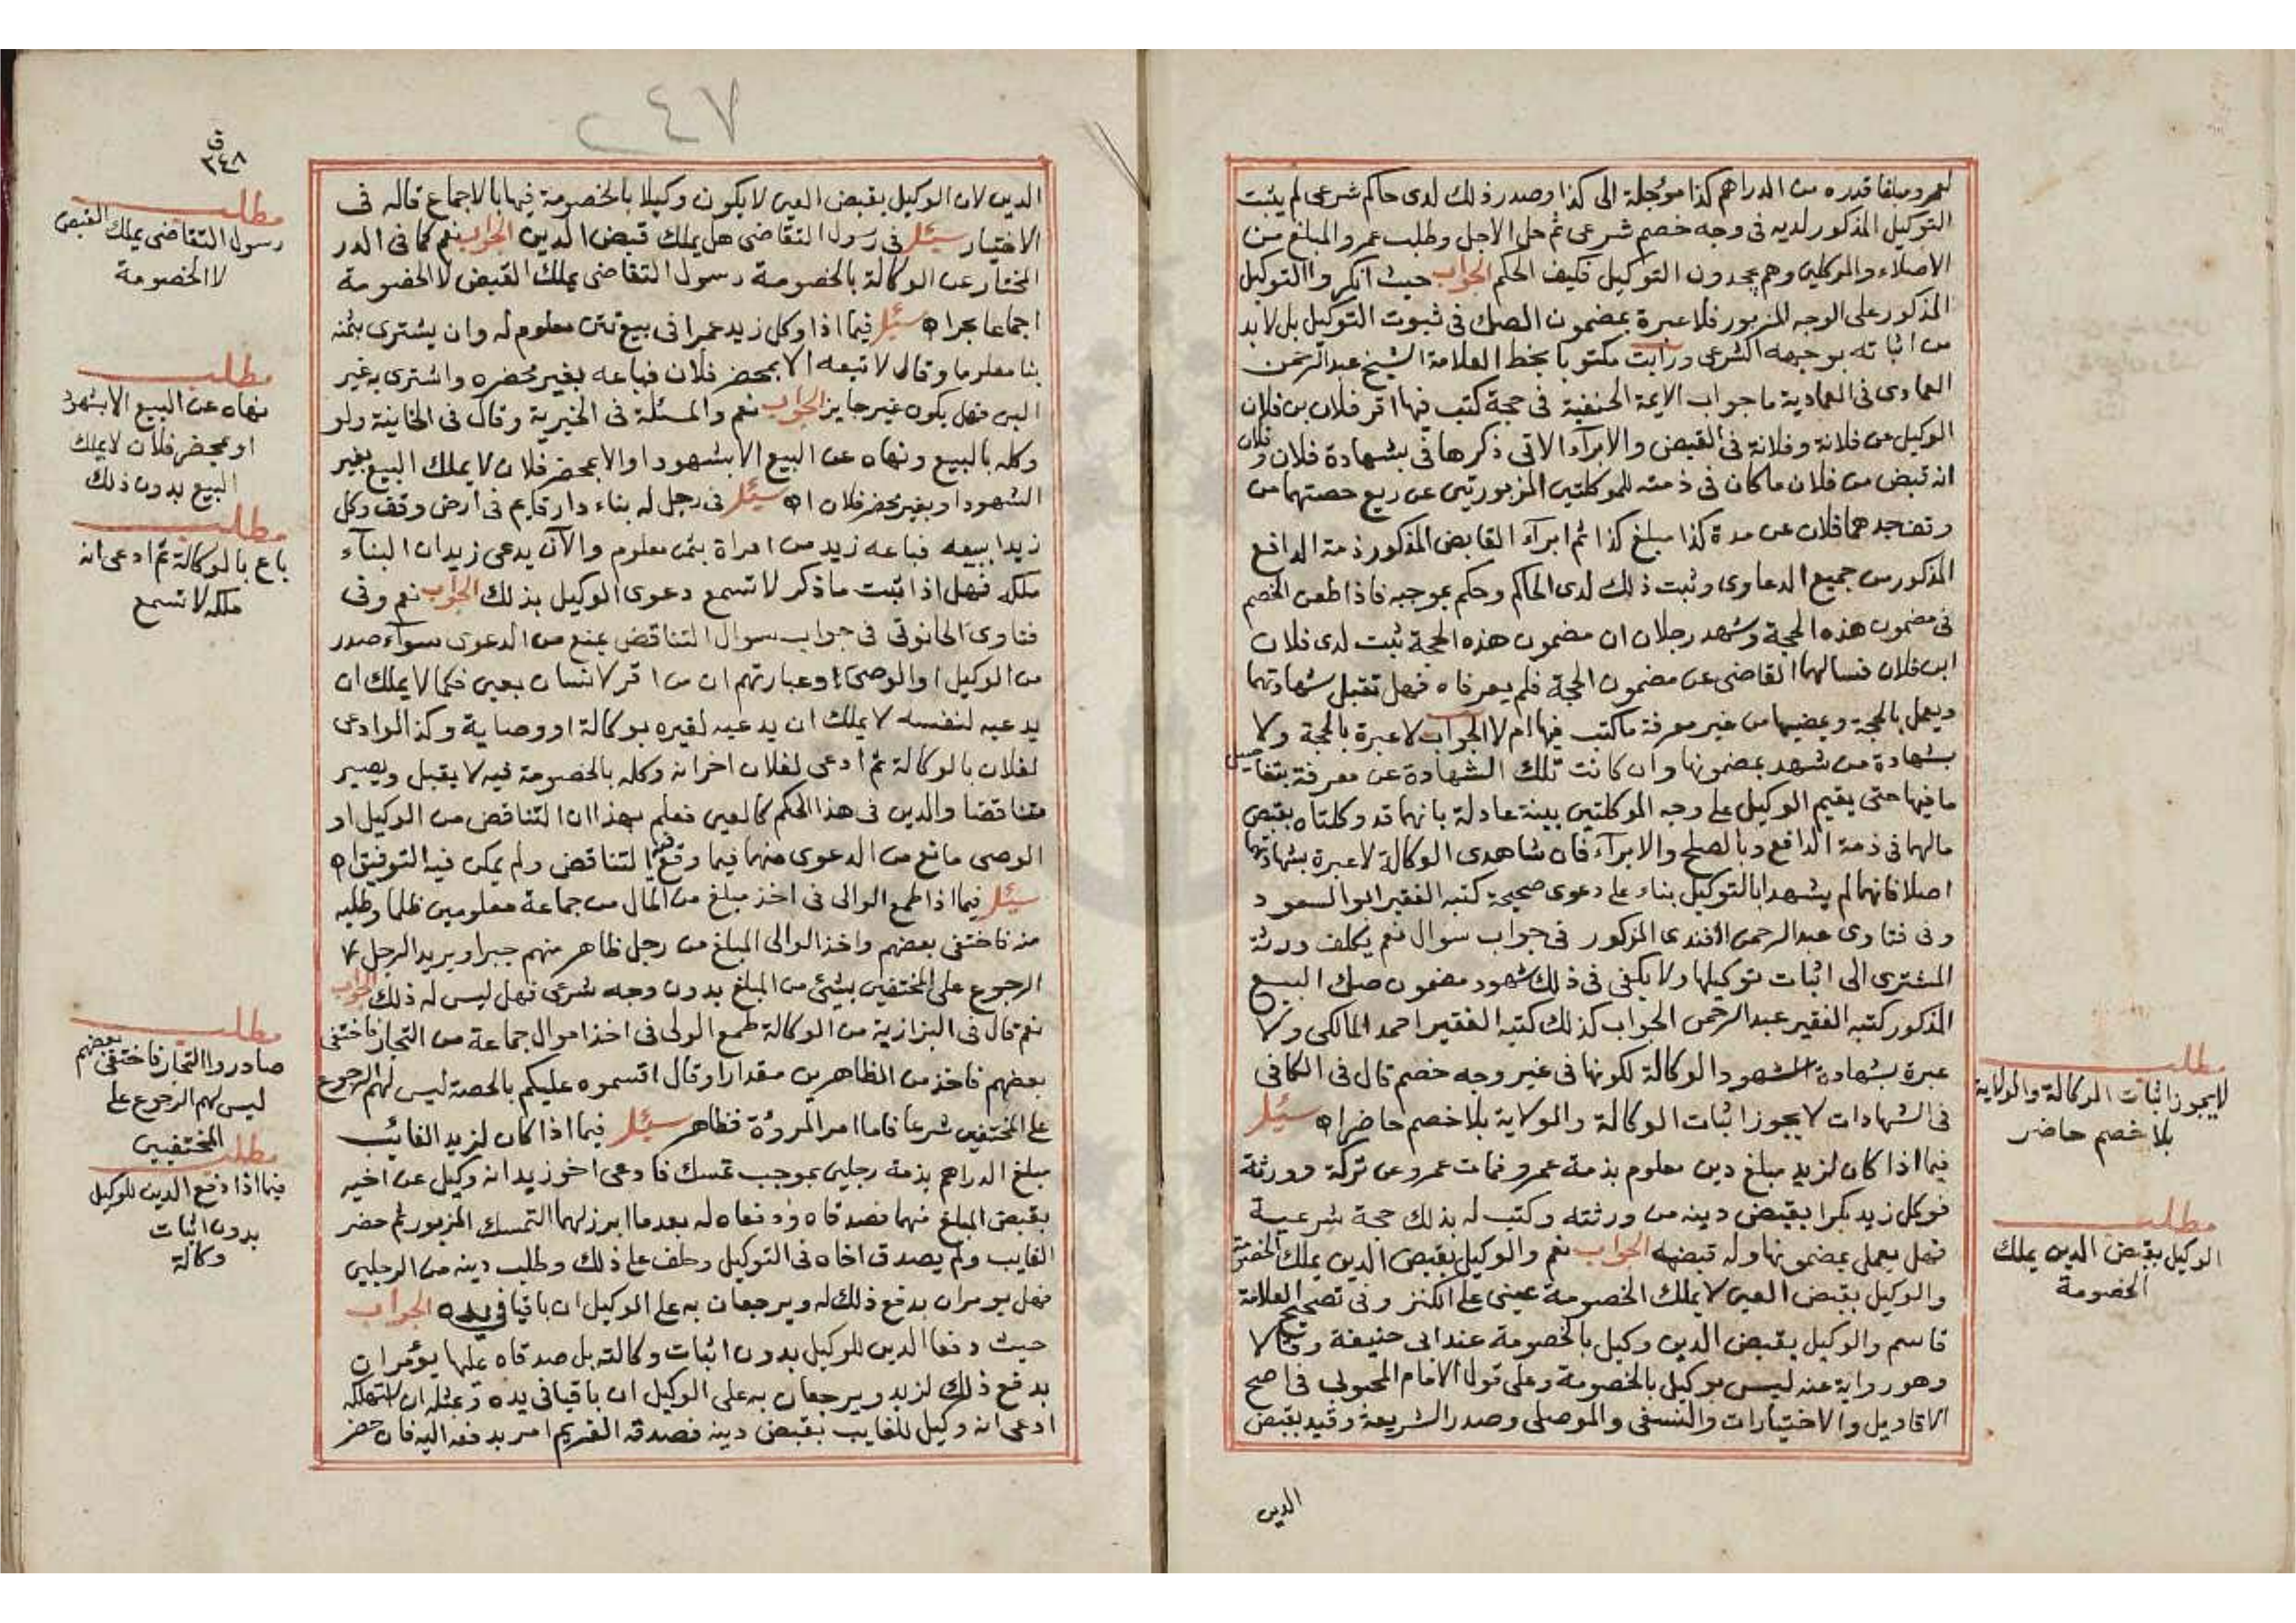 لعمرو مبلغا قدره من الدراهم كذا مؤجلة الى كذا وصدر ذلك لدى حاكم شرعى لم يثبت
التوكيل المذكور لديه فى وجه خصم شرعى ثم حل الاجل وطلب عمرو المبلغ من
الاصلاء والموكلين وهم يجحدون التوكيل فكيف الحكم الجواب حيث انكروا التوكيل
المذكور على الوجه المزبور فلا عبرة بمضمون الصك فى ثبوت التوكيل بل لا بد
من اثباته بوجهه الشرعى ورايت مكتوبا بخط العلامة الشيخ عبد الرحمن
العمادى فى العمادية ما جواب الايمة الحنفية فى حجة كتب فيها اقر فلان بن فلان
الوكيل عن فلانة وفلانة فى القبض والابرآء الاتى ذكرها فى بشهادة فلان وفلان
انه قبض من فلان ما كان فى ذمته للموكلتين المزبورتين عن ريع حصتهما من
فلان عن مدة كذا مبلغ كذا ثم ابرآء القابض المذكور ذمة الدافع
المذكور من جميع الدعاوى وثبت ذلك لدى الحاكم وحكم بموجبه فاذا طعن الخصم
فى مضمون هذه الحجة وشهد رجلان ان مضمون هذه الحجة ثبت لدى فلان
ابن فلان فسالهما القاضى عن مضمون الحجة فلم يعرفاه فهل تقبل شهادتهما
ويعمل بالحجة وبمضيها من غير معرفة ما كتب فيها ام لا الجواب لا عبرة بالحجة ولا
بشهادة من شهد بمضمونها وان كانت تلك الشهادة عن معرفة بتفاصيل
ما فيها حتى يقيم الوكيل على وجه الموكلتين بينة عادلة بانهما قد وكلتاه بقبض
مالهما فى ذمة الدافع وبالصلح والابرآء فان شاهدى الوكالة لا عبرة بشهادتهما
اصلا فانهما لم يشهدا بالتوكيل بناء على دعوى صحيحة كتبه الفقير ابو السعود
وفى فتاوى عبد الرحمن افندى المذكور فى جواب سوال نعم يكلف ورثة
المشترى الى اثبات توكيلها ولا يكفى فى ذلك شهود مضمون صك البيع
المذكور كتبه الفقير عبد الرحمن الجواب كذلك كتبه الفقير احمد المالكى ولا
عبرة بشهادة الشهود الوكالة لكونها فى غير وجه خصم قال فى الكافى
فى الشهادات لا يجوز اثبات الوكالة والولاية بلا خصم حاضر اه سئل
فيما اذا كان لزيد مبلغ دين معلوم بذمة عمرو فمات عمرو عن تركة وورثة
فوكل زيد بكرا بقبض دينه من ورثته وكتب له بذلك حجة شرعية
فهل يعمل بمضمونها وله قبضه الجواب نعم والوكيل بقبض الدين يملك الخصومة
والوكيل بقبض العين لا يملك الخصومة عينى على الكنز وفى تصحيح العلامة
قاسم والوكيل بقبض الدين وكيل بالخصومة عند ابى حنيفة وقالا
وهو رواية عنه ليس بوكيل بالخصومة وعلى قول الامام المحبوبى فى اصح
الاقاويل والاختيارات والنسفى والموصلى وصدر الشريعة وقيد بقبض
الدين
مطلب
لا يجوز اثبات الوكالة والولاية
بلا خصم حاضر
مطلب
الوكيل بقبض الدين يملك
الخصومة
٢٤٧
ق
٣٤٨
الدين لان الوكيل بقبض العين لا يكون وكيلا بالخصومة فيها بالاجماع قاله فى
الاختيار سئل فى رسول التقاضى هل يملك قبض الدين الجواب نعم كما فى الدر
المختار عن الوكالة بالخصومة رسول التقاضى يملك القبض لا الخصومة
اجماعا بحر اه سئل فيما اذا وكل زيد عمرا فى بيع تتن معلوم له وان يشترى بثمنه
بنا معلوما وقال لا تبعه الا بمحضر فلان فباعه بغير محضره واشترى به غير
البن فهل يكون غير جايز الجواب نعم والمسئلة فى الخيرية وقال فى الخانية ولو
وكله بالبيع ونهاه عن البيع الا بشهود او الا بمحضر فلان لا يملك البيع بغير
الشهود او بغير محضر فلان اه سئل فى رجل له بناء دار قايم فى ارض وقف وكل
زيدا ببيعه فباعه زيد من امراة بثمن معلوم والآن يدعى زيد ان البنآء
ملكه فهل اذا ثبت ما ذكر لا تسمع دعوى الوكيل بذلك الجواب نعم وفى
فتاوى الحانوتى فى جواب سوال التناقض يمنع من الدعوى سوآء صدر
من الوكيل او الوصى وعبارتهم ان من اقر لانسان بعين فكما لا يملك ان
يدعيه لنفسه لا يملك ان يدعيه لغيره بوكالة او وصاية وكذا لو ادعى
لفلان بالوكالة ثم ادعى لفلان اخر انه وكله بالخصومة فيه لا يقبل ويصير
متناقضا والدين فى هذا الحكم كالعين فعلم بهذا ان التناقض من الوكيل او
الوصى مانع من الدعوى منهما فيما وقع فيه التناقض ولم يمكن فيه التوفيق اه
سئل فيما اذا طمع الوالى فى اخذ مبلغ من المال من جماعة معلومين ظلما وطلبه
منه فاختفى بعضهم واخذ الوالى المبلغ من رجل ظاهر منهم جبرا ويريد الرجل
الرجوع على المختفين بشئ من المبلغ بدون وجه شرعى فهل ليس له ذلك الجواب
نعم قال فى البزازية من الوكالة طمع الولى فى اخذ اموال جماعة من التجار فاختفى
بعضهم فاخذ من الظاهرين مقدارا وقال اقسموه عليكم بالحصة ليس لهم الرجوع
على المختفين شرعا فاما امر المروءة فظاهر سئل فيما اذا كان لزيد الغائب
مبلغ الدراهم بذمة رجلين بموجب تمسك فادعى اخو زيد انه وكيل عن اخيه
بقبض المبلغ منهما فصدقاه ودفعاه له بعد ما ابرز لهما التمسك المزبور ثم حضر
الغايب ولم يصدق اخاه فى التوكيل وحلف على ذلك وطلب دينه من الرجلين
فهل يومران بدفع ذلك له ويرجعان به على الوكيل ان باقيا فى يده الجواب
حيث دفعا الدين للوكيل بدون اثبات وكالته بل صدقاه عليها يؤمران
بدفع ذلك لزيد ويرجعان به على الوكيل ان باقيا فى يده وبمثله ان استهلكه
ادعى انه وكيل للغايب بقبض دينه فصدقه الغريم امر بدفعه اليه فان حضر
مطلب
رسول التقاضى يملك القبض
لا الخصومة
مطلب
نهاه عن البيع الا بشهود
او بمحضر فلان لا يملك
البيع بدون ذلك
مطلب
باع بالوكالة ثم ادعى انه
ملكه لا تسمع
مطلب
صادروا التجار فاختفى بعضهم
ليس لهم الرجوع على
المختفيين
مطلب
فيما اذا دفع الدين للوكيل
بدون اثبات
وكالة